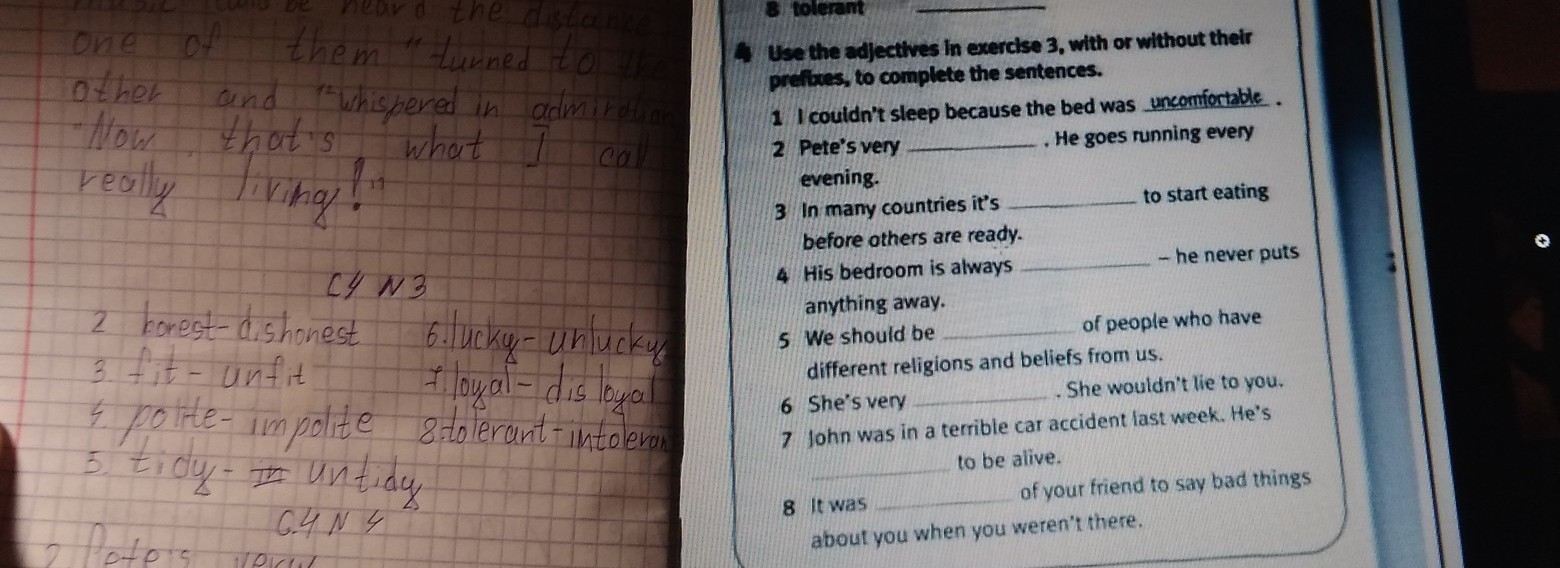 be heard the distance
one of them "turned to the
other and "whispered in admiration
"Now, that's what I call
really living!"
C4 N3
2 honest-dishonest 6.lucky-unlucky
3. fit - unfit 7.loyal-disloyal
4. polite-impolite 8.tolerant-intoleran
5. tidy- untidy
C.4 N 4
2 Pete's very
8 tolerant
4 Use the adjectives in exercise 3, with or without their
prefixes, to complete the sentences.
1 I couldn't sleep because the bed was uncomfortable .
2 Pete's very ____________ . He goes running every
evening.
3 In many countries it's ____________ to start eating
before others are ready.
4 His bedroom is always ____________ – he never puts
anything away.
5 We should be ____________ of people who have
different religions and beliefs from us.
6 She's very ____________ . She wouldn't lie to you.
7 John was in a terrible car accident last week. He's
____________ to be alive.
8 It was ____________ of your friend to say bad things
about you when you weren't there.